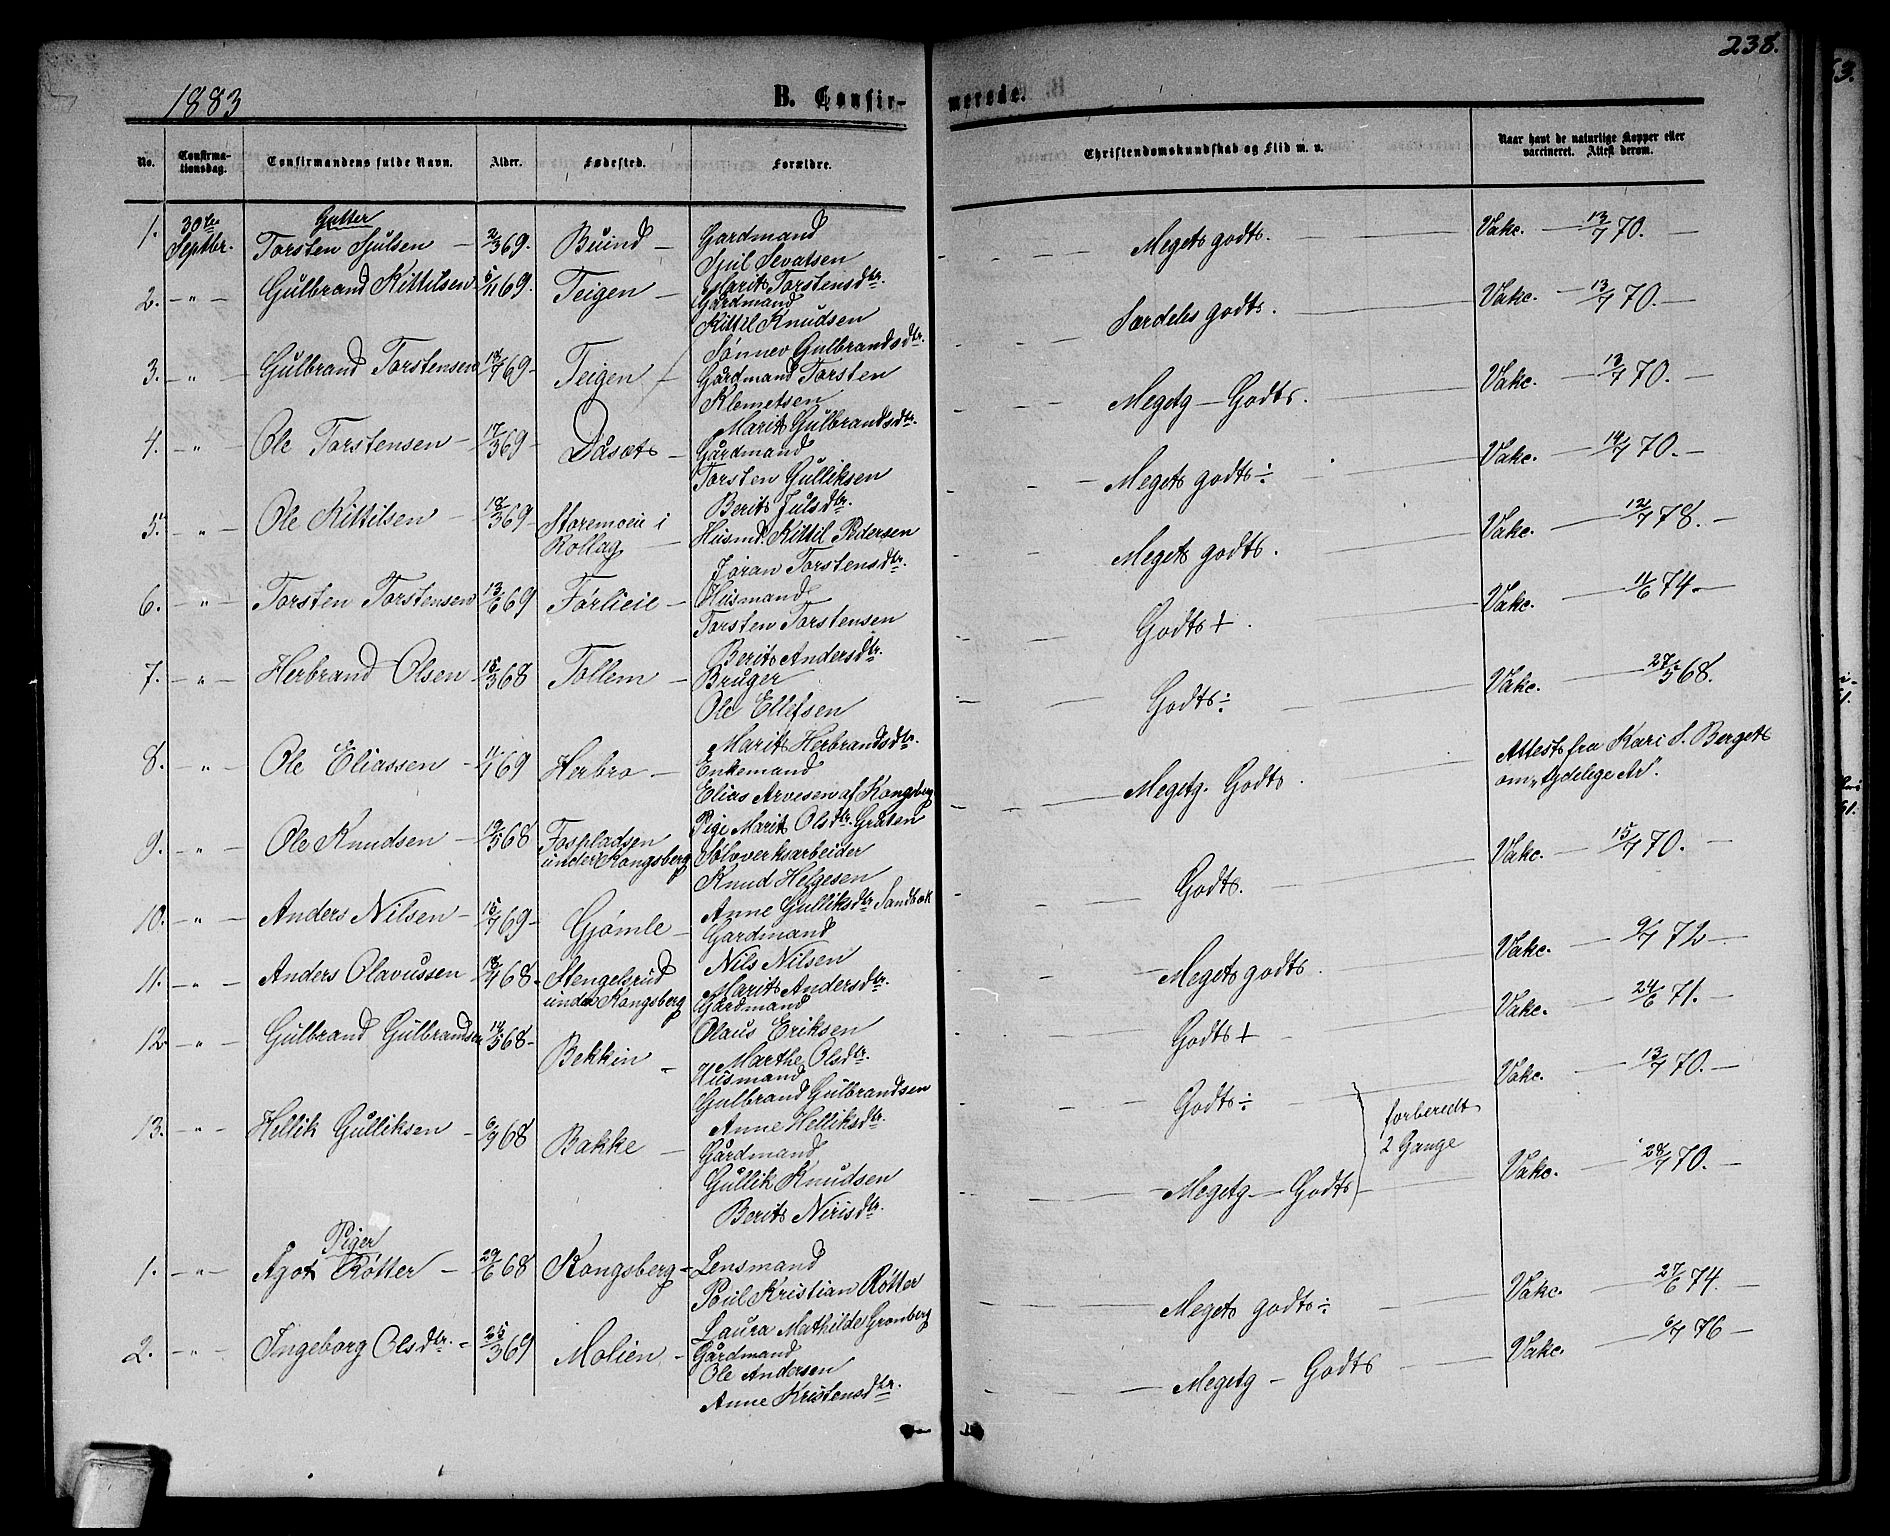 238.
1883
B. Confirmerede.
No.
Confirmationsdag.
Confirmandens fulde Navn.
Alder.
Fødested.
Forældre.
Christendomskundskab og Flid m. v.
Naar havt de naturlige Kopper eller vaccineret. Attest derom.
Gutter
1. 30te Septbr. Torsten Sjulsen - 2/3 69. Buind - Gardmand
Sjul Sevatsen
Marit Torstensdtr.
Meget godt. Vakc. - 13/7 70.
2. - " - Gulbrand Kittilsen 5/11 69. Teigen - Gårdmand
Kittil Knudsen
Sønnev Gulbrandsdtr.
Særdeles godt. Vakc. - 13/7 70. -
3. - " - Gulbrand Torstensen 19/7 69 - Teigen - Gårdmand Torsten
Klemetsen
Marit Gulbrandsdtr.
Megetg - Godt. Vakc. - 13/7 70. -
4. - " - Ole Torstensen - 17/3 69 - Dåset - Gårdmand
Torsten Gulliksen
Berit Julsdtr.
Meget godt ÷ Vakc. - 14/7 70. -
5. - " - Ole Kittilsen - 18/3 69 - Storemoeie i
Rollag - Husmd. Kittil Pedersen
Jøran Torstensdtr.
Meget godt. Vakc. - 12/7 78. -
6. - " - Torsten Torstensen 13/6 69 Førlieie - Husmand
Torsten Torstensen
Berit Andersdtr.
Godt + Vakc. - 11/6 74. -
7. - " - Herbrand Olsen - 15/3 68 Tollem - Bruger
Ole Ellefsen
Marit Herbrandsdtr.
Godt ÷ Vakc. - 27/5 68.
8. - " - Ole Eliassen - 11/1 69 Herbro - Enkemand
Elias Arvesen af Kongsberg
Pige Marit Olsdtr. Gråten
Megetg. Godt Attest fra Kari S. Berget
om „tydelige Ar".
9. - " - Ole Knudsen - 19/5 68 Fospladsen
under Kongsberg Sølvverksarbeider
Knud Helgesen
Anne Gulliksdtr Sandbæk
Godt. Vakc. - 15/7 70. -
10. - " - Anders Nilsen - 15/7 69 - Gjømle - Gardmand
Nils Nilsen
Marit Andersdtr.
Meget godt. Vakc. - 9/7 72 -
11. - " - Anders Olavussen - 18/4 68 - Stengelsrud
under Kongsberg Gårdmand
Olaus Eriksen
Marthe Olsdtr.
Godt + Vakc. - 24/6 71. -
12 - " - Gulbrand Gulbrandsen 14/5 68 - Bekkin - Husmand
Gulbrand Gulbrandsen
Anne Helliksdtr.
Godt ÷ Vakc. - 13/7 70. -
forberedt
2 Gange
13. - " - Hellik Gulliksen - 6/9 68 Bakke - Gårdmand
Gullik Knudsen
Berit Nirisdtr.
Megetg - Godt - Vakc. - 28/7 70. -
Piger
1. - " - Agot Røtter - 29/6 68 Kongsberg - Lensmand
Poul Kristian Røtter
Laura Mathilde Grønberg
Meget godt ÷ Vakc. - 27/6 74. -
2. - " - Ingeborg Olsdtr. - 25/3 69 Molien - Gårdmand
Ole Andersen
Anne Kristensdtr.
Megetg - Godt Vakc. - 6/7 76 -